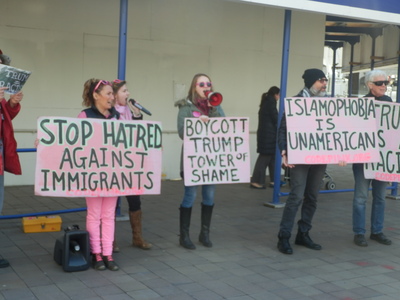 TRUMP
STOP HATRED
AGAINST
IMMIGRANTS
BOYCOTT
TRUMP
TOWER OF
SHAME
ISLAMOPHOBIA
IS
UNAMERICAN